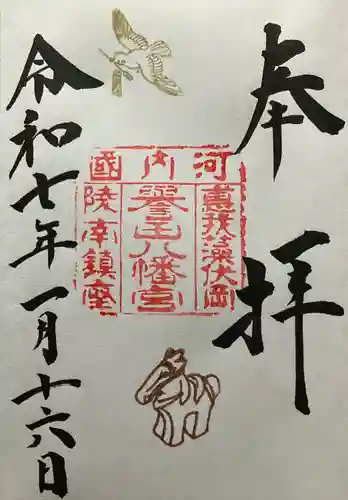 奉拝
河内國
惠我藻伏岡
譽田八幡宮
陵南鎮座
令和七年一月十六日